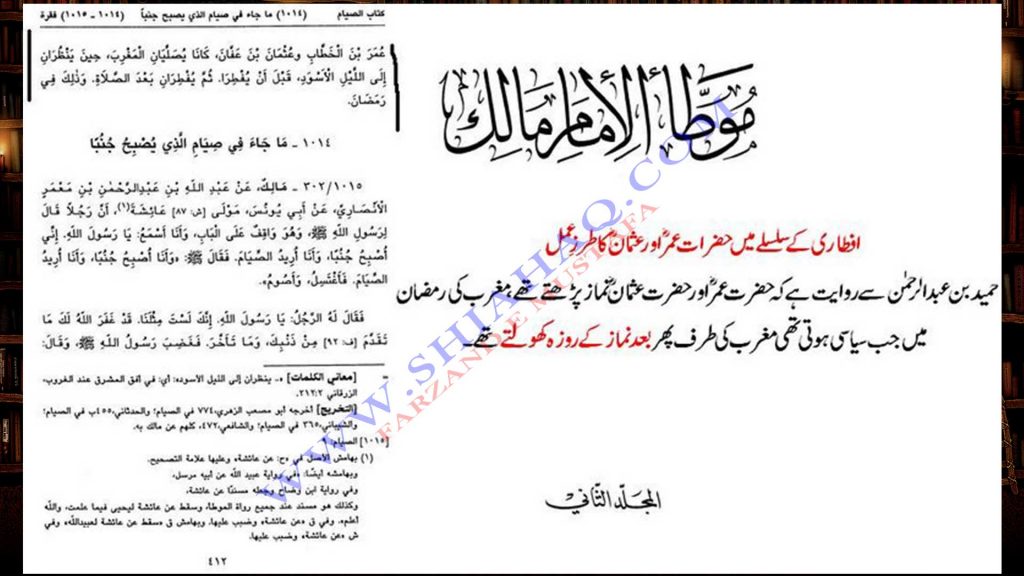 كتاب الصيام (١٠١٤) ما جاء في صيام الذي يصبح جنباً (١٠١٤ - ١٠١٥) فقرة
عُمَرَ بْنَ الْخَطَّابِ وعُثْمَانَ بْنَ عَفَّانَ، كَانَا يُصَلِّيَانِ الْمَغْرِبَ، حِينَ يَنْظُرَانِ
إِلَى اللَّيْلِ الْأَسْوَدِ، قَبْلَ أَنْ يُفْطِرَا. ثُمَّ يُفْطِرَانِ بَعْدَ الصَّلَاةِ. وَذَلِكَ فِي
رَمَضَانَ.
١٠١٤ - مَا جَاءَ فِي صِيَامِ الَّذِي يُصْبِحُ جُنُبًا
٣٠٢/١٠١٥ - مَالِكٌ، عَنْ عَبْدِ اللهِ بْنِ عَبْدِالرَّحْمٰنِ بْنِ مَعْمَرٍ
الْأَنْصَارِيِّ، عَنْ أَبِي يُونُسَ، مَوْلَى [ش: ٨٧] عَائِشَةَ(١)، أَنَّ رَجُلاً قَالَ
لِرَسُولِ اللهِ ﷺ، وَهُوَ وَاقِفٌ عَلَى الْبَابِ، وَأَنَا أَسْمَعُ: يَا رَسُولَ اللهِ. إِنِّي
أُصْبِحُ جُنُبًا، وَأَنَا أُرِيدُ الصِّيَامَ. فَقَالَ ﷺ: «وَأَنَا أُصْبِحُ جُنُبًا، وَأَنَا أُرِيدُ
الصِّيَامَ. فَأَغْتَسِلُ، وَأَصُومُ».
فَقَالَ لَهُ الرَّجُلُ: يَا رَسُولَ اللهِ. إِنَّكَ لَسْتَ مِثْلَنَا. قَدْ غَفَرَ اللهُ لَكَ مَا
تَقَدَّمَ [ف: ٩٢] مِنْ ذَنْبِكَ، وَمَا تَأَخَّرَ. فَغَضِبَ رَسُولُ اللهِ ﷺ، وَقَالَ:
[معاني الكلمات] «.. ينظران إلى الليل الأسود»: أي: في أفق المشرق عند الغروب،
الزرقاني ٢١٢:٢
[التخريج] أخرجه أبو مصعب الزهري، ٧٧٤ في الصيام؛ والحدثاني، ٤٥٥ب في الصيام؛
والشيباني، ٣٦٥ في الصيام؛ والشافعي، ٤٧٢، كلهم عن مالك به.
[١٠١٥] الصيام: ٩
(١) بهامش الأصل في «ح: عن عائشة» وعليها علامة التصحيح.
وبهامشه أيضًا: «في رواية عبيد الله عن أبيه مرسل،
وفي رواية ابن وضاح وجعله مسندًا عن عائشة،
وكذلك هو مسند عند جميع رواة الموطأ، وسقط عن عائشة ليحيى فيما علمت، والله
أعلم». وفي ق «عن عائشة» وضبب عليها. وبهامش ق «سقط عن عائشة لعبيدالله» وفي
ش «عن عائشة» وضبب عليها.
٤١٢
مُوَطَّأ الإِمَامِ مَالِك
افطاری کے سلسلے میں حضرات عمرؓ اور عثمانؓ کا طرز عمل
حمید بن عبدالرحمٰن سے روایت ہے کہ حضرت عمرؓ اور حضرت عثمانؓ نماز پڑھتے تھے مغرب کی رمضان
میں جب سیاسی ہوتی تھی مغرب کی طرف پھر بعد نماز کے روزہ کھولتے تھے۔
المجلد الثاني
WWW.SHIAHAQ.COM
FARZAND E MUSTAFA